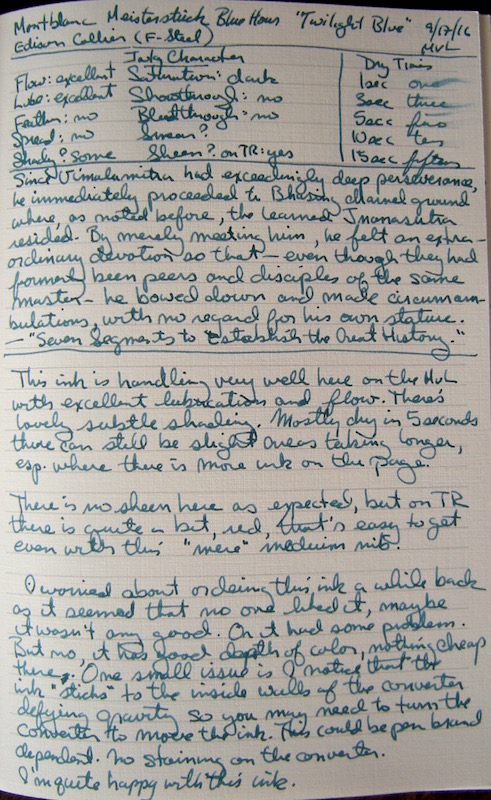 Montblanc Meisterstück Blue Hour "Twilight Blue" 9/17/16
Edison Collier (F-Steel) MvL
Inky Character Dry Times
Flow: excellent Saturation: dark 1sec one
Lube: excellent Showthrough: no 3sec three
Feather: no Bleedthrough: no 5sec five
Spread: no Smear? 10sec ten
Shady? some Sheen? on TR: yes 15sec fifteen
Since Vimalamitra had exceedingly deep perseverance,
he immediately proceeded to Bhasing charnel ground
where, as noted before, the learned Jnanasutra
resided. By merely meeting him, he felt an extra-
ordinary devotion so that — even though they had
formerly been peers and disciples of the same
master — he bowed down and made circumam-
bulations, with no regard for his own stature.
— "Seven Segments to Establish the Great History."
This ink is handling very well here on the MvL
with excellent lubrication and flow. There's
lovely subtle shading. Mostly dry in 5 seconds
there can still be slight areas taking longer,
esp. where there is more ink on the page.
There is no sheen here as expected, but on TR
there is quite a bit, red, that's easy to get
even with this "mere" medium nib.
I worried about ordering this ink a while back
as it seemed that no one liked it, maybe
it wasn't any good. Or it had some problem.
But no, it has good depth of color, nothing cheap
there. One small issue is I notice that the
ink "sticks" to the inside walls of the converter
defying gravity so you may need to turn the
converter to move the ink. This could be pen brand
dependent. No staining on the converter.
I'm quite happy with this ink.